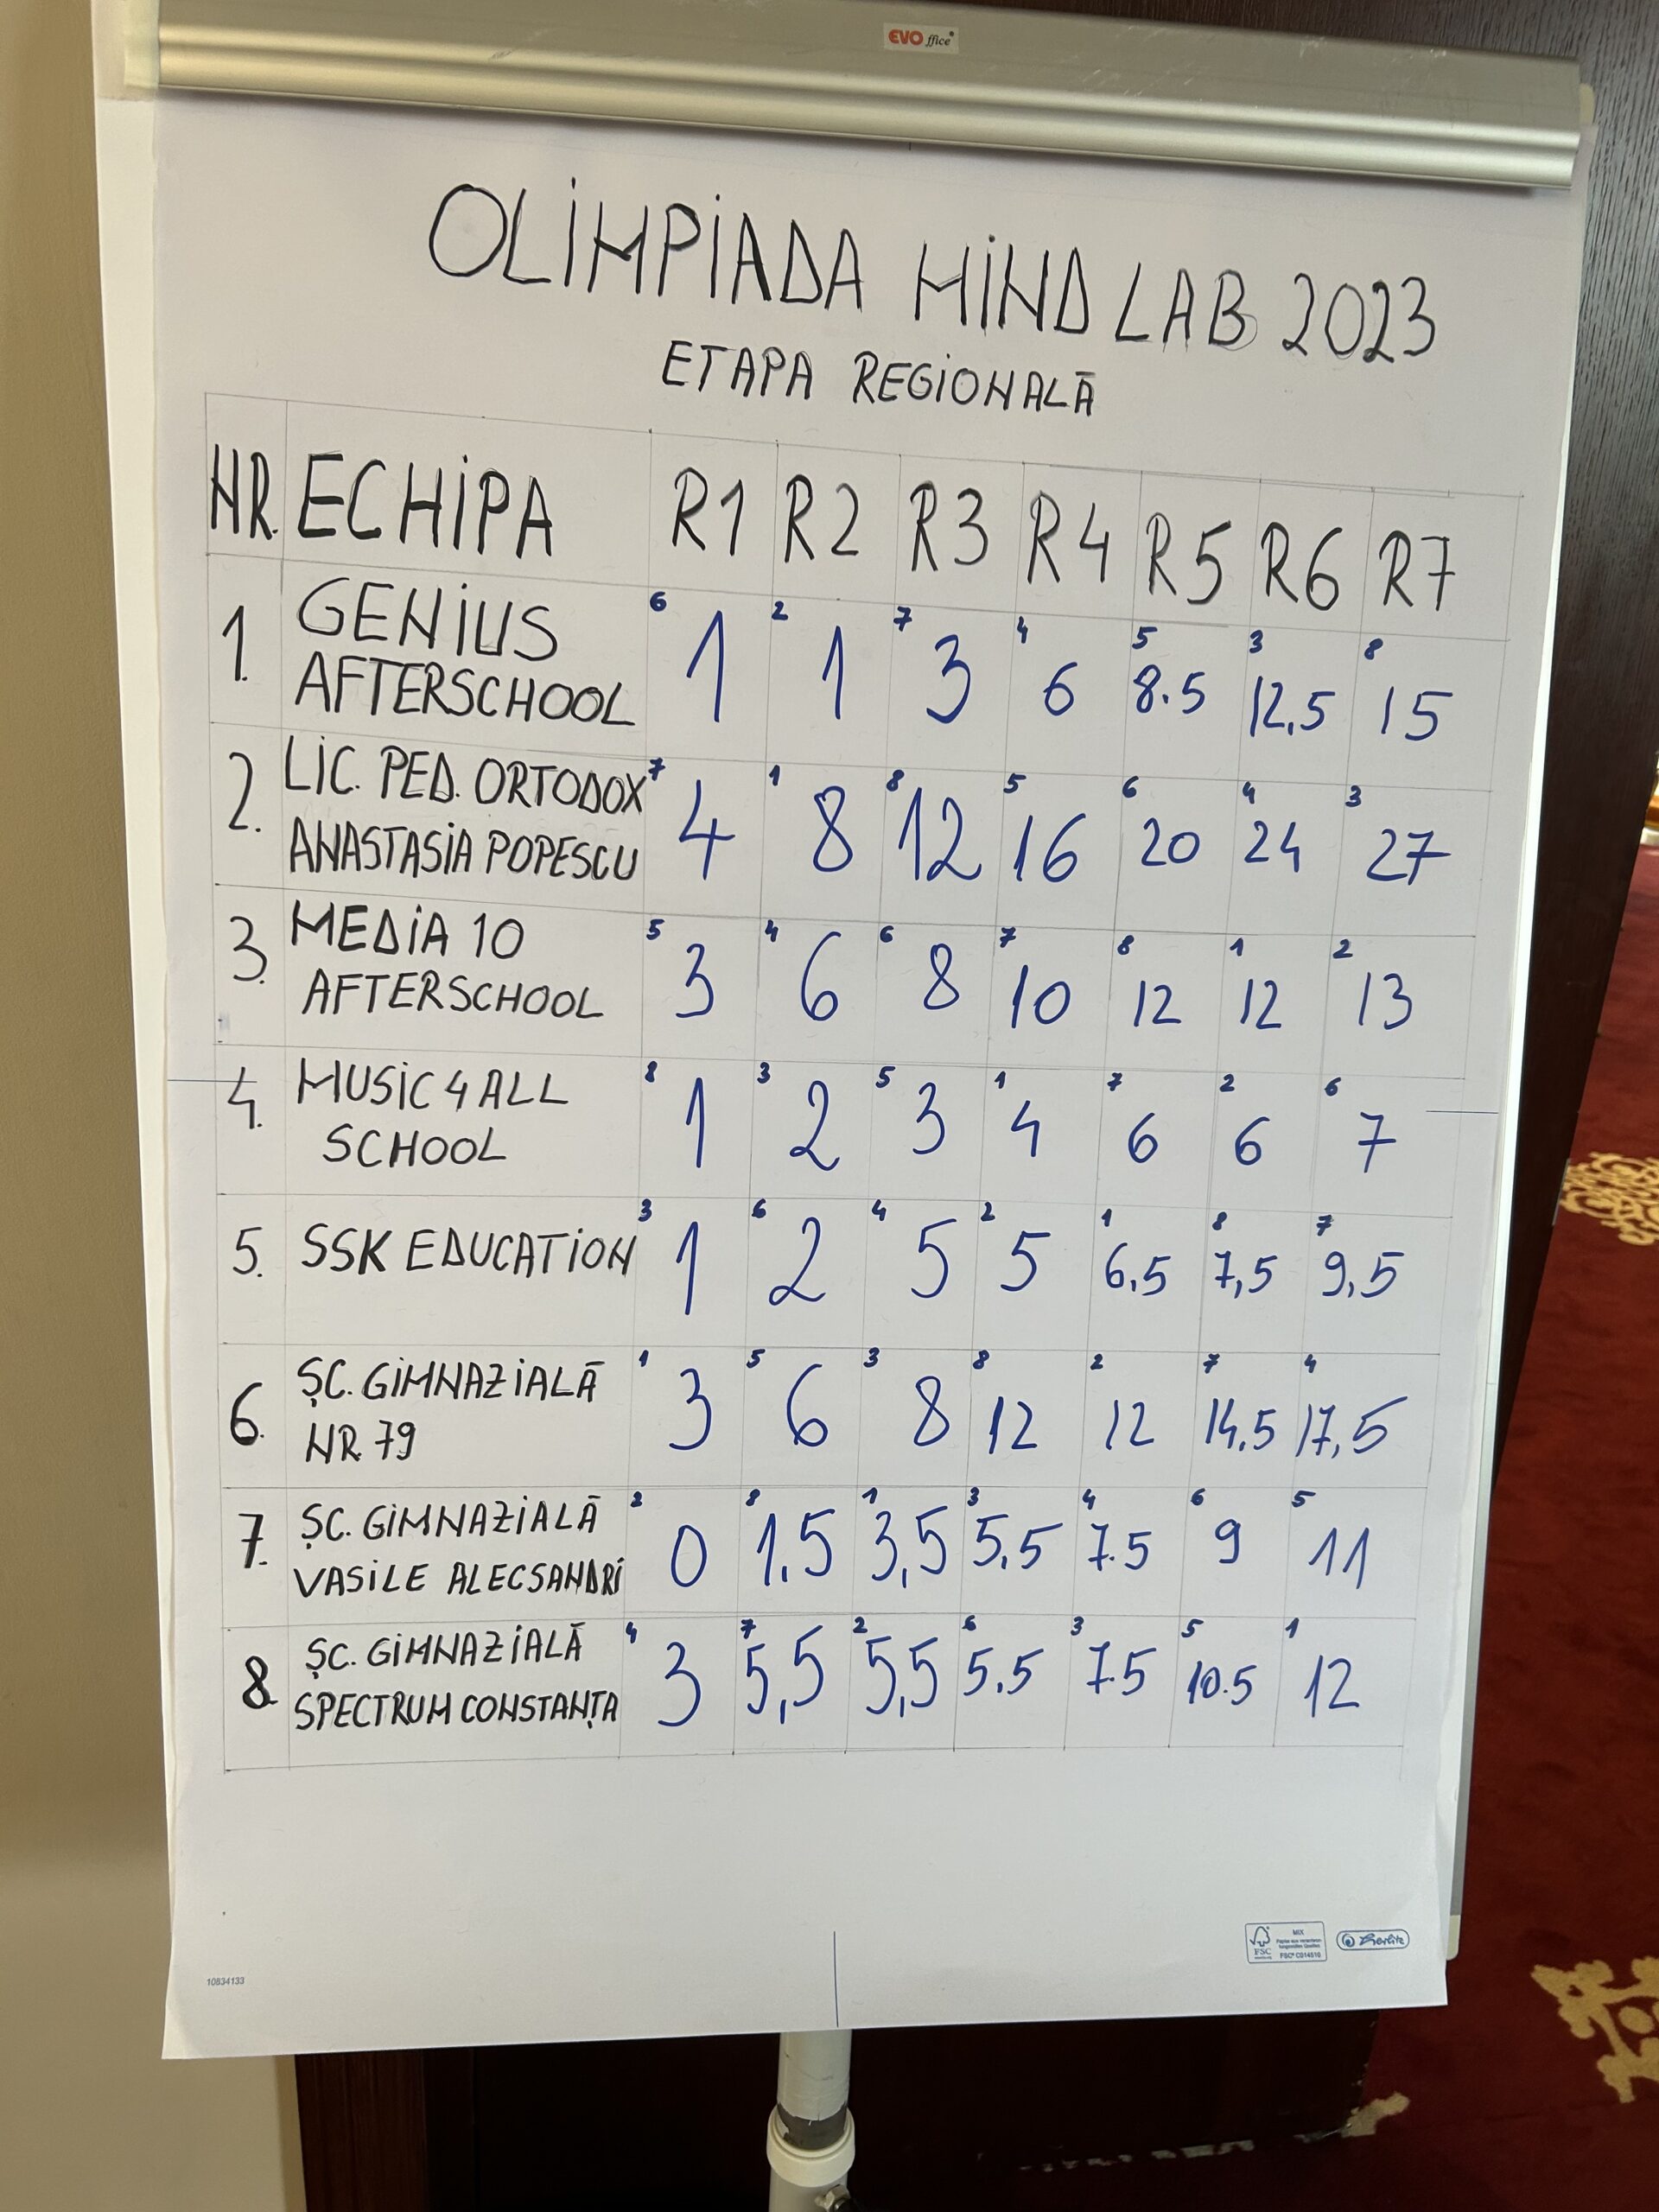 EVOffice
OLIMPIADA MIND LAB 2023
ETAPA REGIONALĂ
NR. ECHIPA R1 R2 R3 R4 R5 R6 R7
6 2 7 4 5 3 8
1. GENIUS AFTERSCHOOL 1 1 3 6 8.5 12,5 15
7 1 8 5 6 4 3
2. LIC. PED. ORTODOX ANASTASIA POPESCU 4 8 12 16 20 24 27
5 4 6 7 8 1 2
3. MEDIA 10 AFTERSCHOOL 3 6 8 10 12 12 13
8 3 5 1 7 2 6
4. MUSIC 4 ALL SCHOOL 1 2 3 4 6 6 7
3 6 4 2 1 8 7
5. SSK EDUCATION 1 2 5 5 6,5 7,5 9,5
1 5 3 8 2 7 4
6. ȘC. GIMNAZIALĂ NR. 79 3 6 8 12 12 14,5 17,5
2 8 1 3 4 6 5
7. ȘC. GIMNAZIALĂ VASILE ALECSANDRI 0 1,5 3,5 5,5 7.5 9 11
4 7 2 6 3 5 1
8. ȘC. GIMNAZIALĂ SPECTRUM CONSTANȚA 3 5,5 5,5 5.5 7.5 10.5 12
FSC
MIX
FSC® C014516
herlitz
10834133